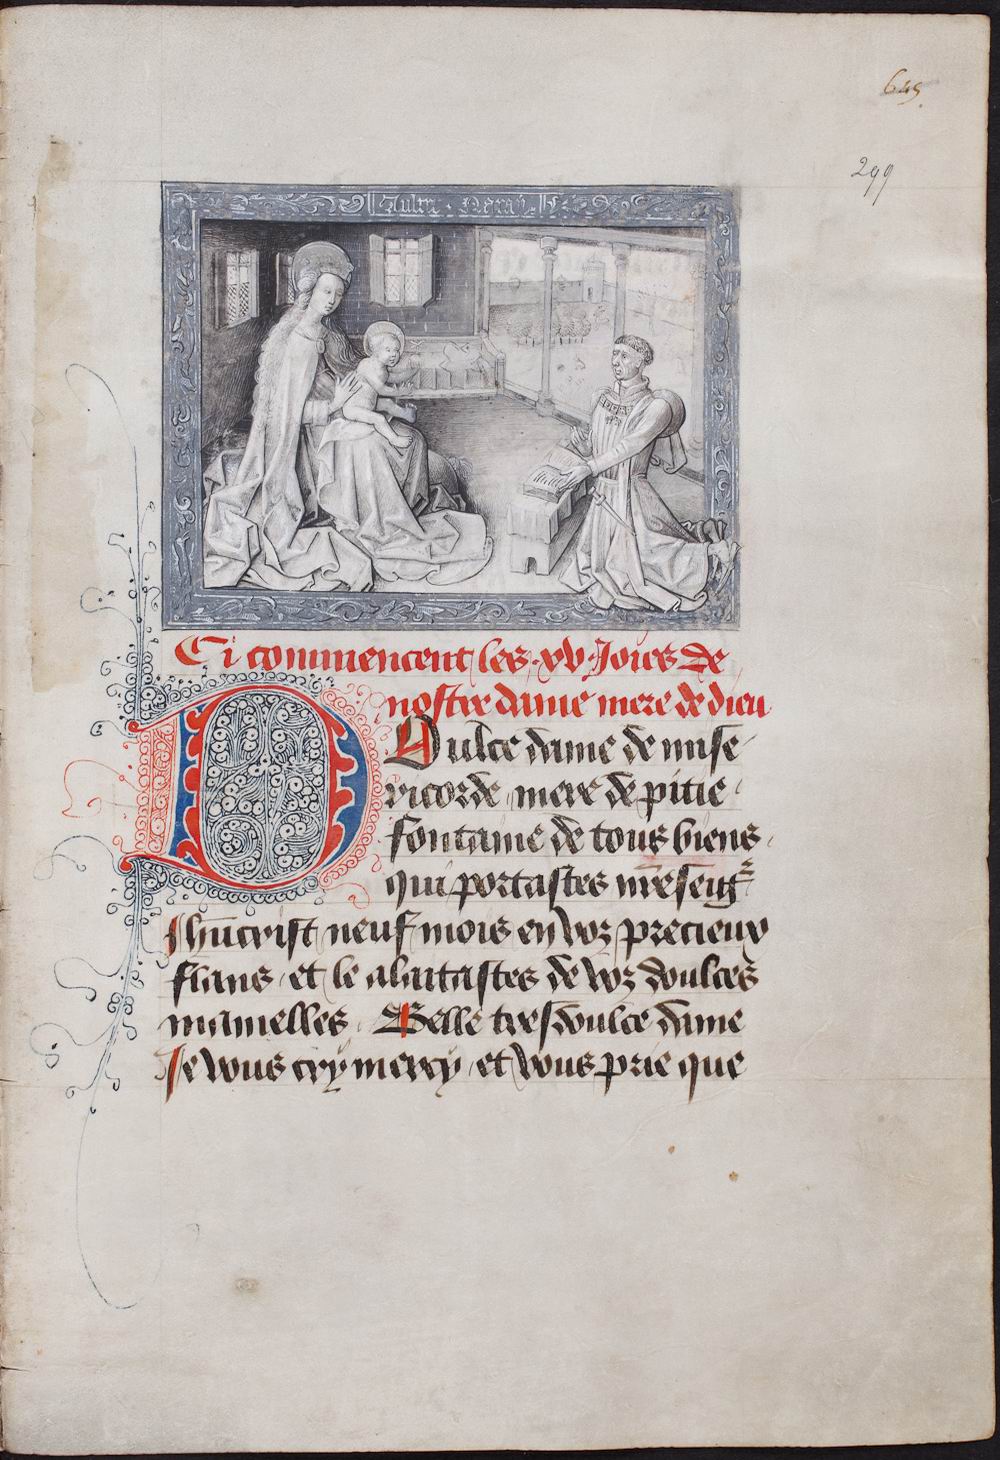 645.
299
Aultre Naray
Ci commencent les .xv. Joies de
nostre dame mere de dieu
Dulce dame de mise
ricorde mere de pitie
fontaine de tous biens
qui portastes nr̄e seigr̄
Jhūcrist neuf mois en voz precieux
flans et le alaitastes de voz doulces
mamelles. Belle tresdoulce dame
Je vous cry mercy et vous prie que